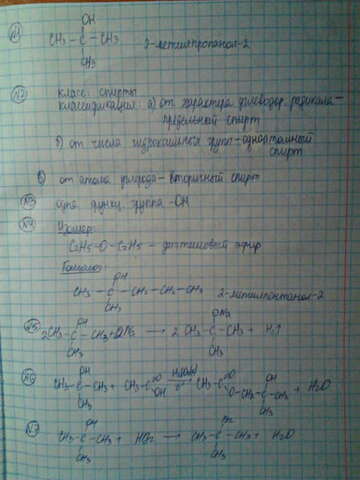 №1
OH
CH₃ - C - CH₃ 2-метилпропанол-2
CH₃
№2 класс: спирты
классификация: а) от характера углеводор. радикала -
предельный спирт
б) от числа гидроксильных групп - одноатомный
спирт
в) от атома углерода - вторичный спирт
№3 функц. группа -OH
№4 Изомер:
C₂H₅ - O - C₂H₅ - диэтиловый эфир
Гомолог:
OH
CH₃ - C - CH₂ - CH₂ - CH₃
CH₃ 2-метилпентанол-2
№5 OH ONa
2CH₃ - C - CH₃ + 2Na → 2 CH₃ - C - CH₃ + H₂↑
CH₃ CH₃
№6 OH O O OH
CH₃ - C - CH₃ + CH₃ - C → CH₃ - C + H₂O
CH₃ OH O - CH₂ - C - CH₃
CH₃
№7 OH
CH₃ - C - CH₃ + → CH₃ - C - CH₃ + H₂O
CH₃ CH₃